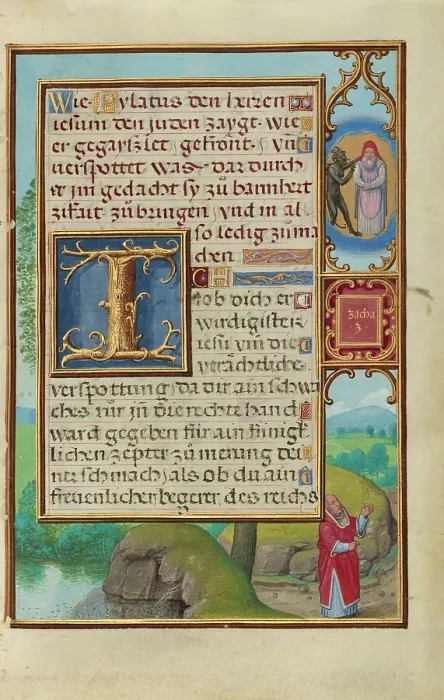 Wie Pylatus den herren
iesum den juden zaygt. wie
er gegayszlet gekront. vnd
verspottet was. dar durch
er jm gedacht sy zu barmhert
zikait zu bringen, vnd in al
so ledig zu ma
chen
ICH
lob dich er
wirdigister
iesu vm die
verächtliche
verspottung, da dir ain schwa
ches rür jn die rechte hand
ward gegeben für ain künigk
lichen zepter zu merung dei
ner schmach, als ob du ain
freuenlicher begerer des reichs
Zacha
3